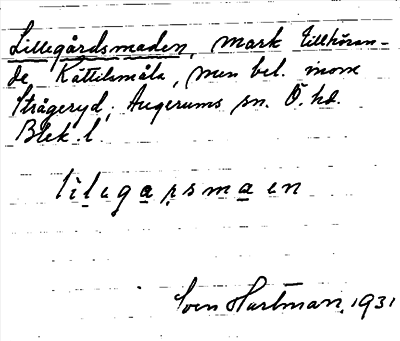 Lillegårdsmaden, mark tillhöran-
de Kättilsmåla, men bel. inom
Strågeryd, Augerums sn. Ö. hd.
Blek. l.
lilegarsmaen
Sven Hartman, 1931